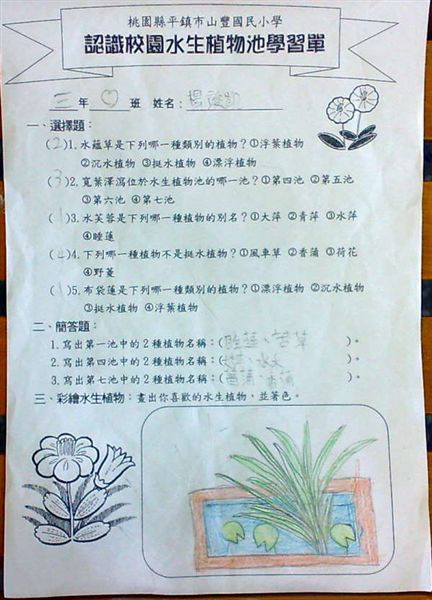 桃園縣平鎮市山豐國民小學
認識校園水生植物池學習單
三年 班 姓名：楊
一、選擇題：
(2)1.水蘊草是下列哪一種類別的植物？①浮葉植物
②沉水植物 ③挺水植物 ④漂浮植物
(3)2.寬葉澤瀉位於水生植物池的哪一池？①第四池 ②第五池
③第六池 ④第七池
(1)3.水芙蓉是下列哪一種植物的別名？①大萍 ②青萍 ③水萍
④睡蓮
(4)4.下列哪一種植物不是挺水植物？①風車草 ②香蒲 ③荷花
④野菱
(1)5.布袋蓮是下列哪一種類別的植物？①漂浮植物 ②沉水植物
③挺水植物 ④浮葉植物
二、簡答題：
1.寫出第一池中的2種植物名稱：(睡蓮、苦草)。
2.寫出第四池中的2種植物名稱：( )。
3.寫出第七池中的2種植物名稱：(菖蒲、香蒲)。
三、彩繪水生植物：畫出你喜歡的水生植物，並著色。